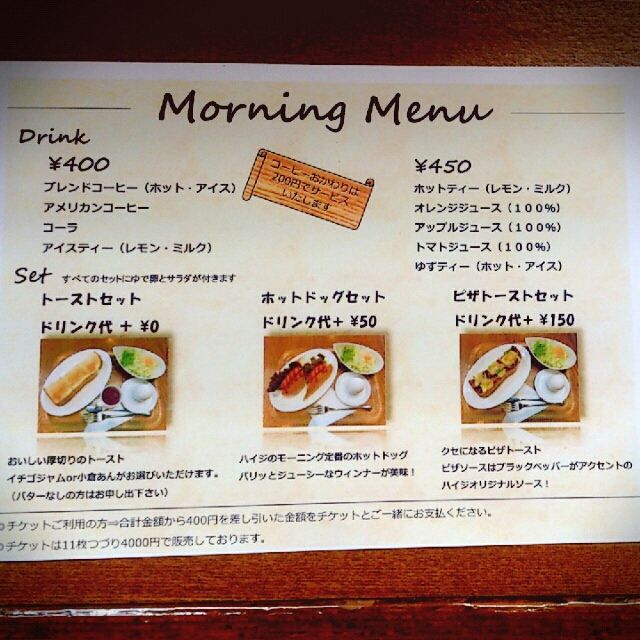 Morning Menu
Drink
¥400
ブレンドコーヒー（ホット・アイス）
アメリカンコーヒー
コーラ
アイスティー（レモン・ミルク）
コーヒーおかわりは
200円でサービス
いたします
¥450
ホットティー（レモン・ミルク）
オレンジジュース（１００％）
アップルジュース（１００％）
トマトジュース（１００％）
ゆずティー（ホット・アイス）
Set すべてのセットにゆで卵とサラダが付きます
トーストセット
ドリンク代 ＋ ¥0
おいしい厚切りのトースト
イチゴジャムor小倉あんがお選びいただけます。
（バターなしの方はお申し出下さい）
ホットドッグセット
ドリンク代＋ ¥50
ハイジのモーニング定番のホットドッグ
パリッとジューシーなウィンナーが美味！
ピザトーストセット
ドリンク代＋ ¥150
クセになるピザトースト
ピザソースはブラックペッパーがアクセントの
ハイジオリジナルソース！
チケットご利用の方⇒合計金額から400円を差し引いた金額をチケットとご一緒にお支払ください。
チケットは11枚つづり4000円で販売しております。